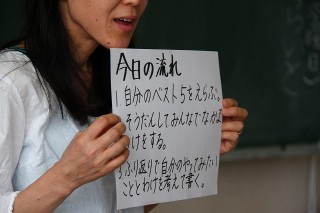 今日の流れ
1.自分のベスト5をえらぶ。
そうだんしてみんなでなかま
けをする。
3ふり返りで自分のやってみたい
こととわけを考えて書く。